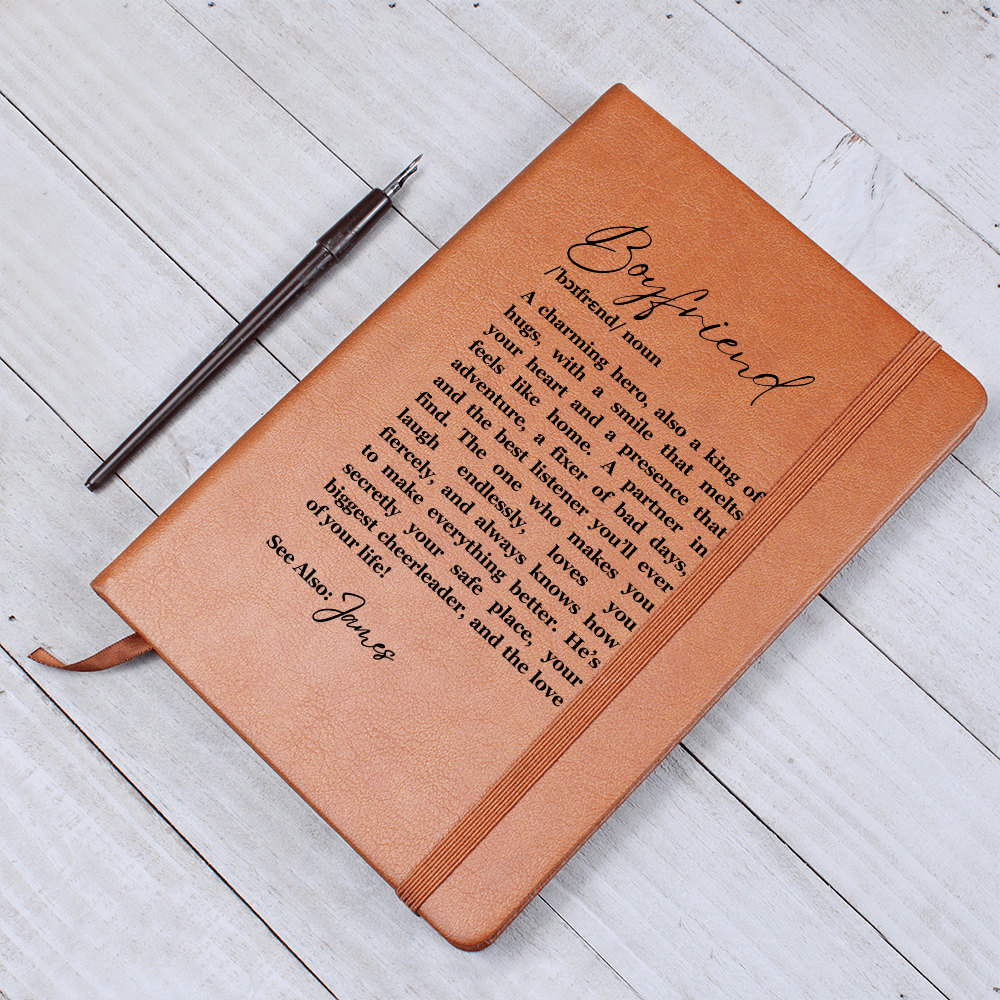 Boyfriend
/'bɔɪfrɛnd/ noun
A charming hero, also a king of
hugs, with a smile that melts
your heart and a presence that
feels like home. A partner in
adventure, a fixer of bad days,
and the best listener you'll ever
find. The one who makes you
laugh endlessly, loves you
fiercely, and always knows how
to make everything better. He's
secretly your safe place, your
biggest cheerleader, and the love
of your life!
See Also: James